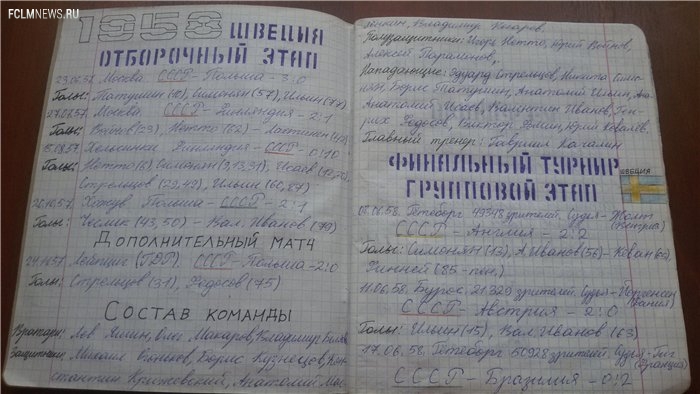 FCLMNEWS.RU
1958 ШВЕЦИЯ
ОТБОРОЧНЫЙ ЭТАП
23.06.57. Москва. СССР - Польша - 3:0
Голы: Татушин Симонян (57), Ильин (77)
27.07.57. Москва. СССР - Финляндия - 2:1
Голы: Войнов (23), Нетто (62) - Лахтинен
15.08.57. Хельсинки. Финляндия - СССР - 0:10
Голы: Нетто Симонян Исаев
Стрельцов Ильин (60,87)
20.10.57. Хожув. Польша - СССР - 2:1
Голы: Чеслик (43,50) - Вал. Иванов (79)
ДОПОЛНИТЕЛЬНЫЙ МАТЧ
24.11.57. Лейпциг (ГДР). СССР - Польша - 2:0
Голы: Стрельцов (31), Федосов (75)
СОСТАВ КОМАНДЫ
Вратари: Лев Яшин, Олег Макаров, Владимир Беляев
Защитники: Михаил Огоньков, Борис Кузнецов, Кон-
стантин Крижевский, Анатолий Мас-
Владимир Кесарев.
Полузащитники: Игорь Нетто, Юрий Войнов,
Алексей Парамонов,
Нападающие: Эдуард Стрельцов, Никита Симо-
нян, Борис Татушин, Анатолий Ильин,
Анатолий Исаев, Валентин Иванов, Ген-
рих Федосов, Виктор Фомин, Юрий Ковалёв,
Главный тренер: Гавриил Качалин
ФИНАЛЬНЫЙ ТУРНИР
ГРУППОВОЙ ЭТАП
ШВЕЦИЯ
08.06.58. Гётеборг 49348 зрителей. Судья - Жолт
(Венгрия)
СССР - Англия - 2:2
Голы: Симонян (13), А.Иванов (56) - Кеван
Финней (85-пен.)
11.06.58. Бурос. 21239 зрителей. Судья - Йоргенсен
(Дания)
СССР - Австрия - 2:0
Голы: Ильин (15), Вал. Иванов (63)
17.06.58. Гётеборг 50928 зрителей. Судья - Гиг
(Франция)
СССР - Бразилия - 0:2